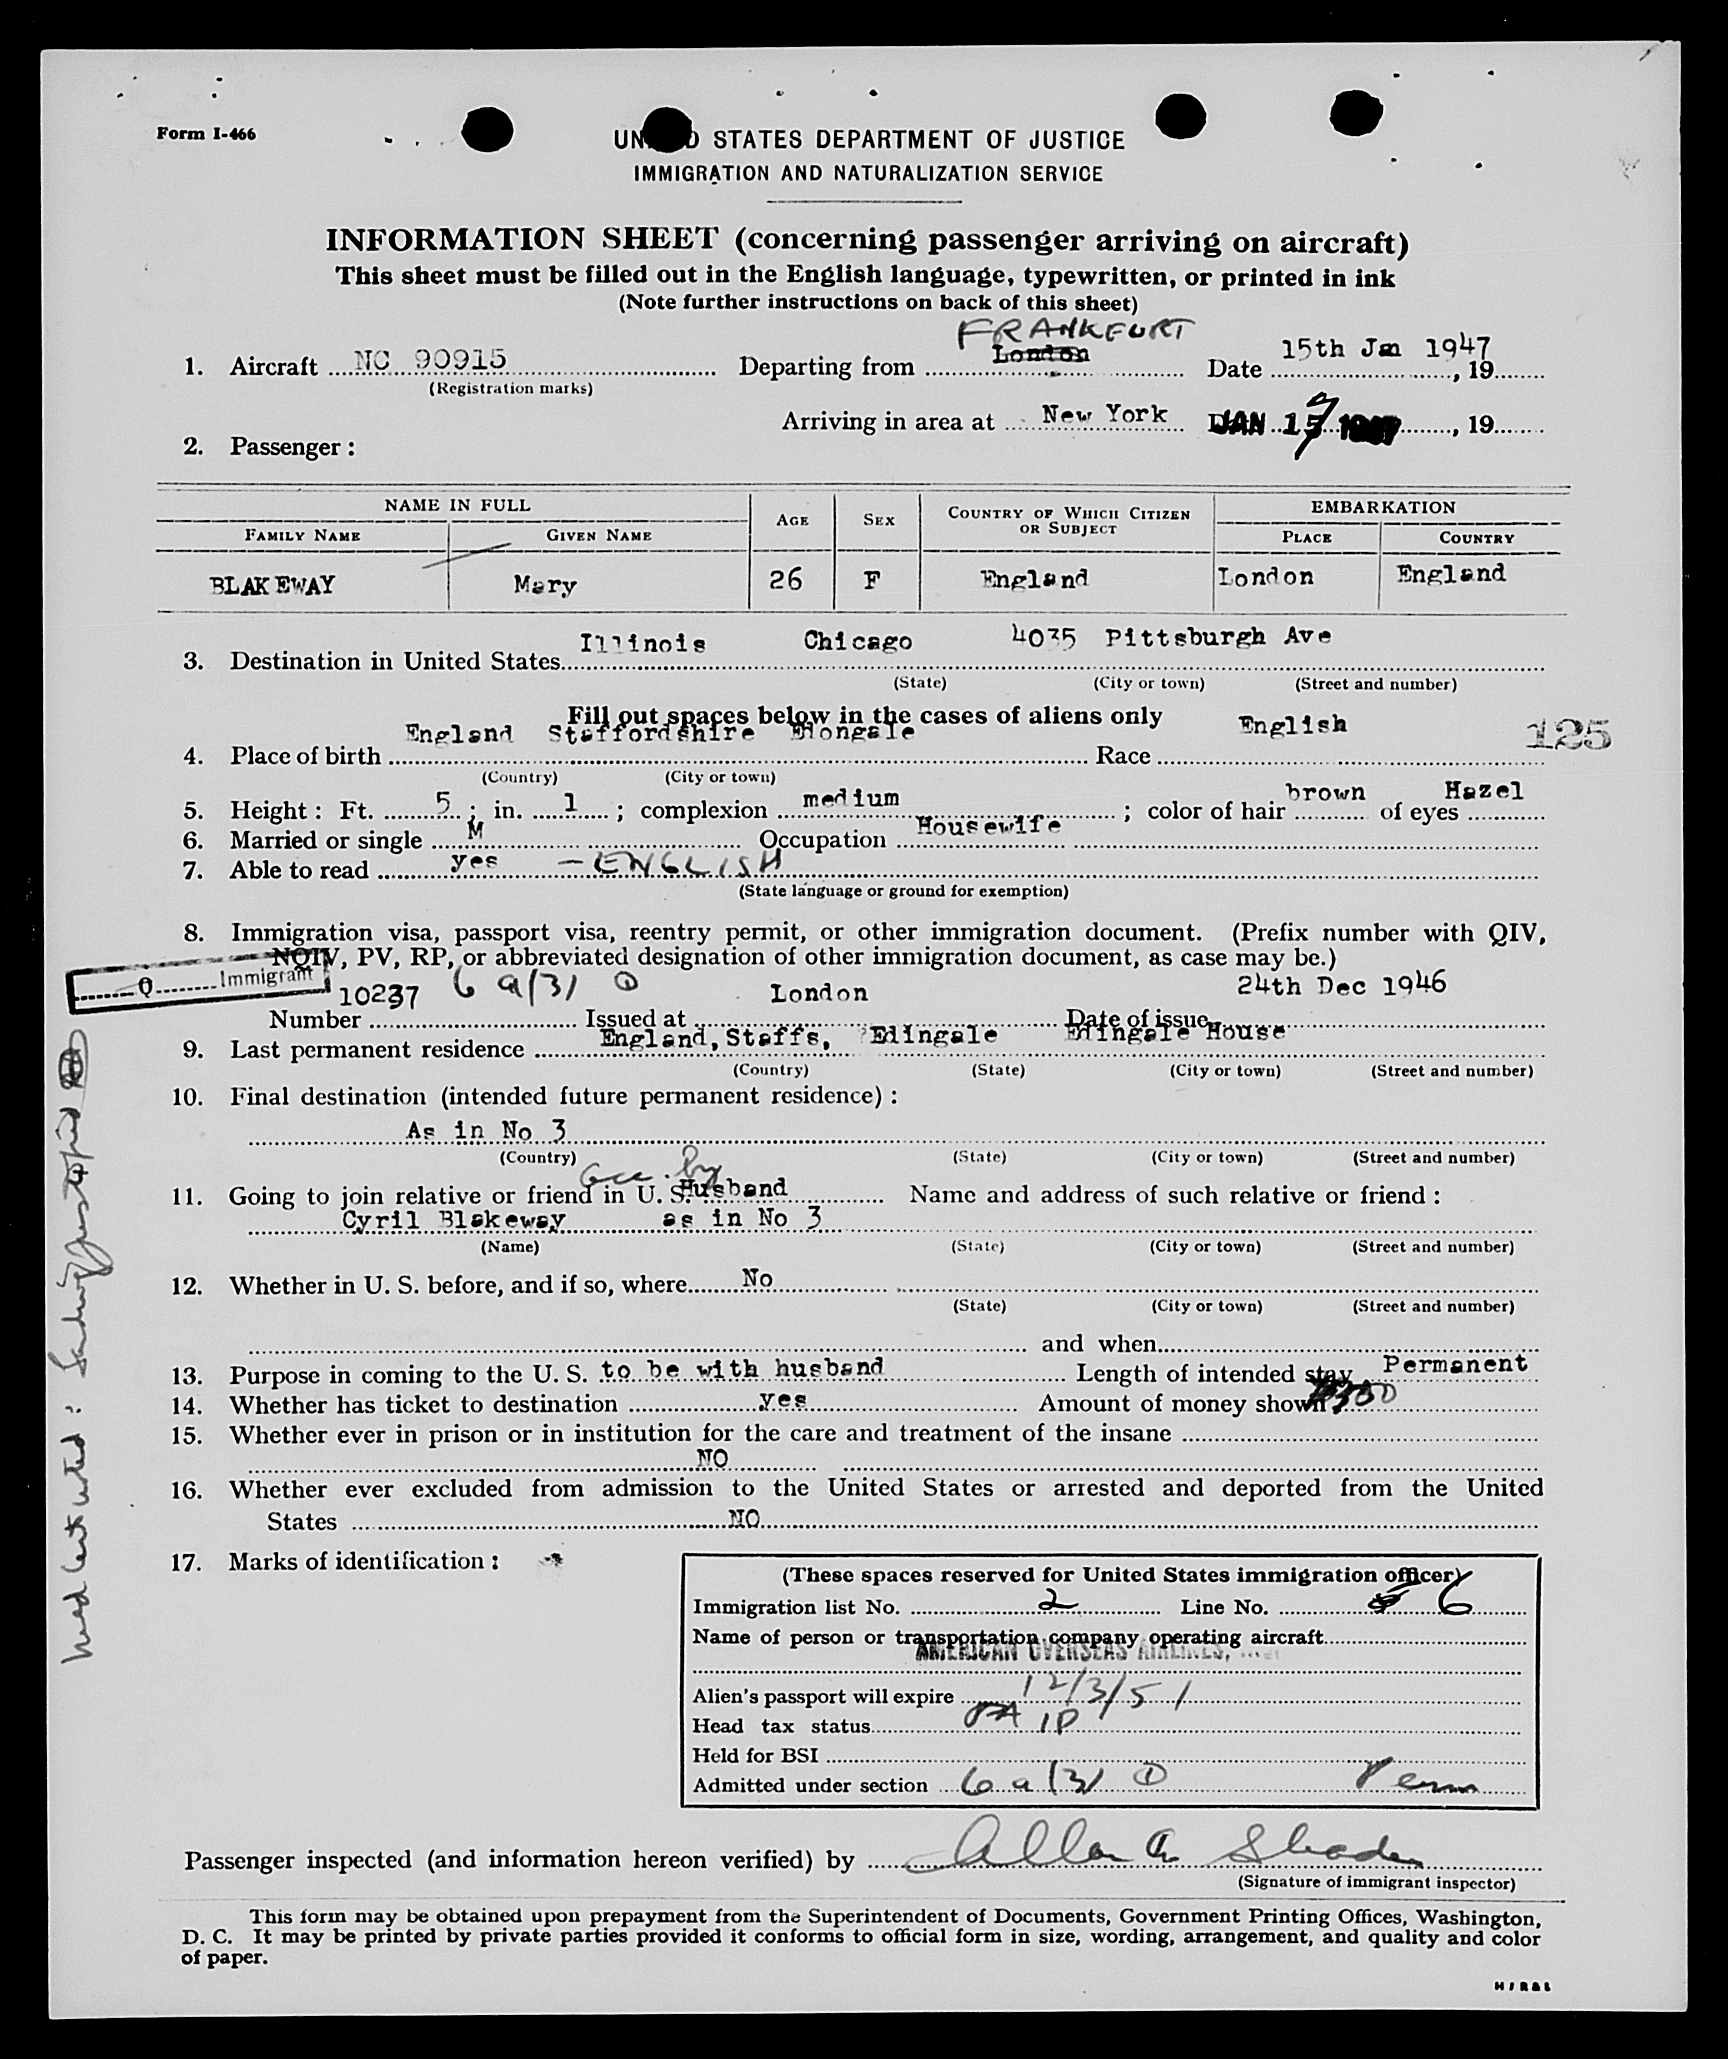 Form I-466
UNITED STATES DEPARTMENT OF JUSTICE
IMMIGRATION AND NATURALIZATION SERVICE
INFORMATION SHEET (concerning passenger arriving on aircraft)
This sheet must be filled out in the English language, typewritten, or printed in ink
(Note further instructions on back of this sheet)
FRANKFURT
1. Aircraft NC 90915 Departing from London Date 15th Jan 1947, 19
(Registration marks)
Arriving in area at New York JAN 17 , 19
2. Passenger :
NAME IN FULL AGE SEX COUNTRY OF WHICH CITIZEN OR SUBJECT EMBARKATION
FAMILY NAME GIVEN NAME PLACE COUNTRY
BLAKEWAY Mary 26 F England London England
3. Destination in United States Illinois Chicago 4035 Pittsburgh Ave
(State) (City or town) (Street and number)
Fill out spaces below in the cases of aliens only
4. Place of birth England Staffordshire Race English
125
(Country) (City or town)
5. Height : Ft. 5 ; in. 1 ; complexion medium ; color of hair brown of eyes Hazel
6. Married or single M Occupation Housewife
7. Able to read yes - ENGLISH
(State language or ground for exemption)
8. Immigration visa, passport visa, reentry permit, or other immigration document. (Prefix number with QIV,
NQIV, PV, RP, or abbreviated designation of other immigration document, as case may be.)
Q Immigrant
Number 10237 6 a(3) Issued at London Date of issue 24th Dec 1946
9. Last permanent residence England, Staffs, Edingale Edingale House
(Country) (State) (City or town) (Street and number)
10. Final destination (intended future permanent residence) :
As in No 3
(Country) (State) (City or town) (Street and number)
acc. by
11. Going to join relative or friend in U. S. Husband Name and address of such relative or friend :
Cyril Blakeway as in No 3
(Name) (State) (City or town) (Street and number)
12. Whether in U. S. before, and if so, where No
(State) (City or town) (Street and number)
and when
13. Purpose in coming to the U. S. to be with husband Length of intended stay Permanent
14. Whether has ticket to destination yes Amount of money shown
15. Whether ever in prison or in institution for the care and treatment of the insane
NO
16. Whether ever excluded from admission to the United States or arrested and deported from the United
States NO
17. Marks of identification :
(These spaces reserved for United States immigration officer)
Immigration list No. 2 Line No. 6
Name of person or transportation company operating aircraft
AMERICAN OVERSEAS AIRLINES,
Alien's passport will expire 12/3/51
Head tax status PAID
Held for BSI
Admitted under section 6 a (3) Perm
Passenger inspected (and information hereon verified) by Allan
(Signature of immigrant inspector)
This form may be obtained upon prepayment from the Superintendent of Documents, Government Printing Offices, Washington,
D. C. It may be printed by private parties provided it conforms to official form in size, wording, arrangement, and quality and color
of paper.